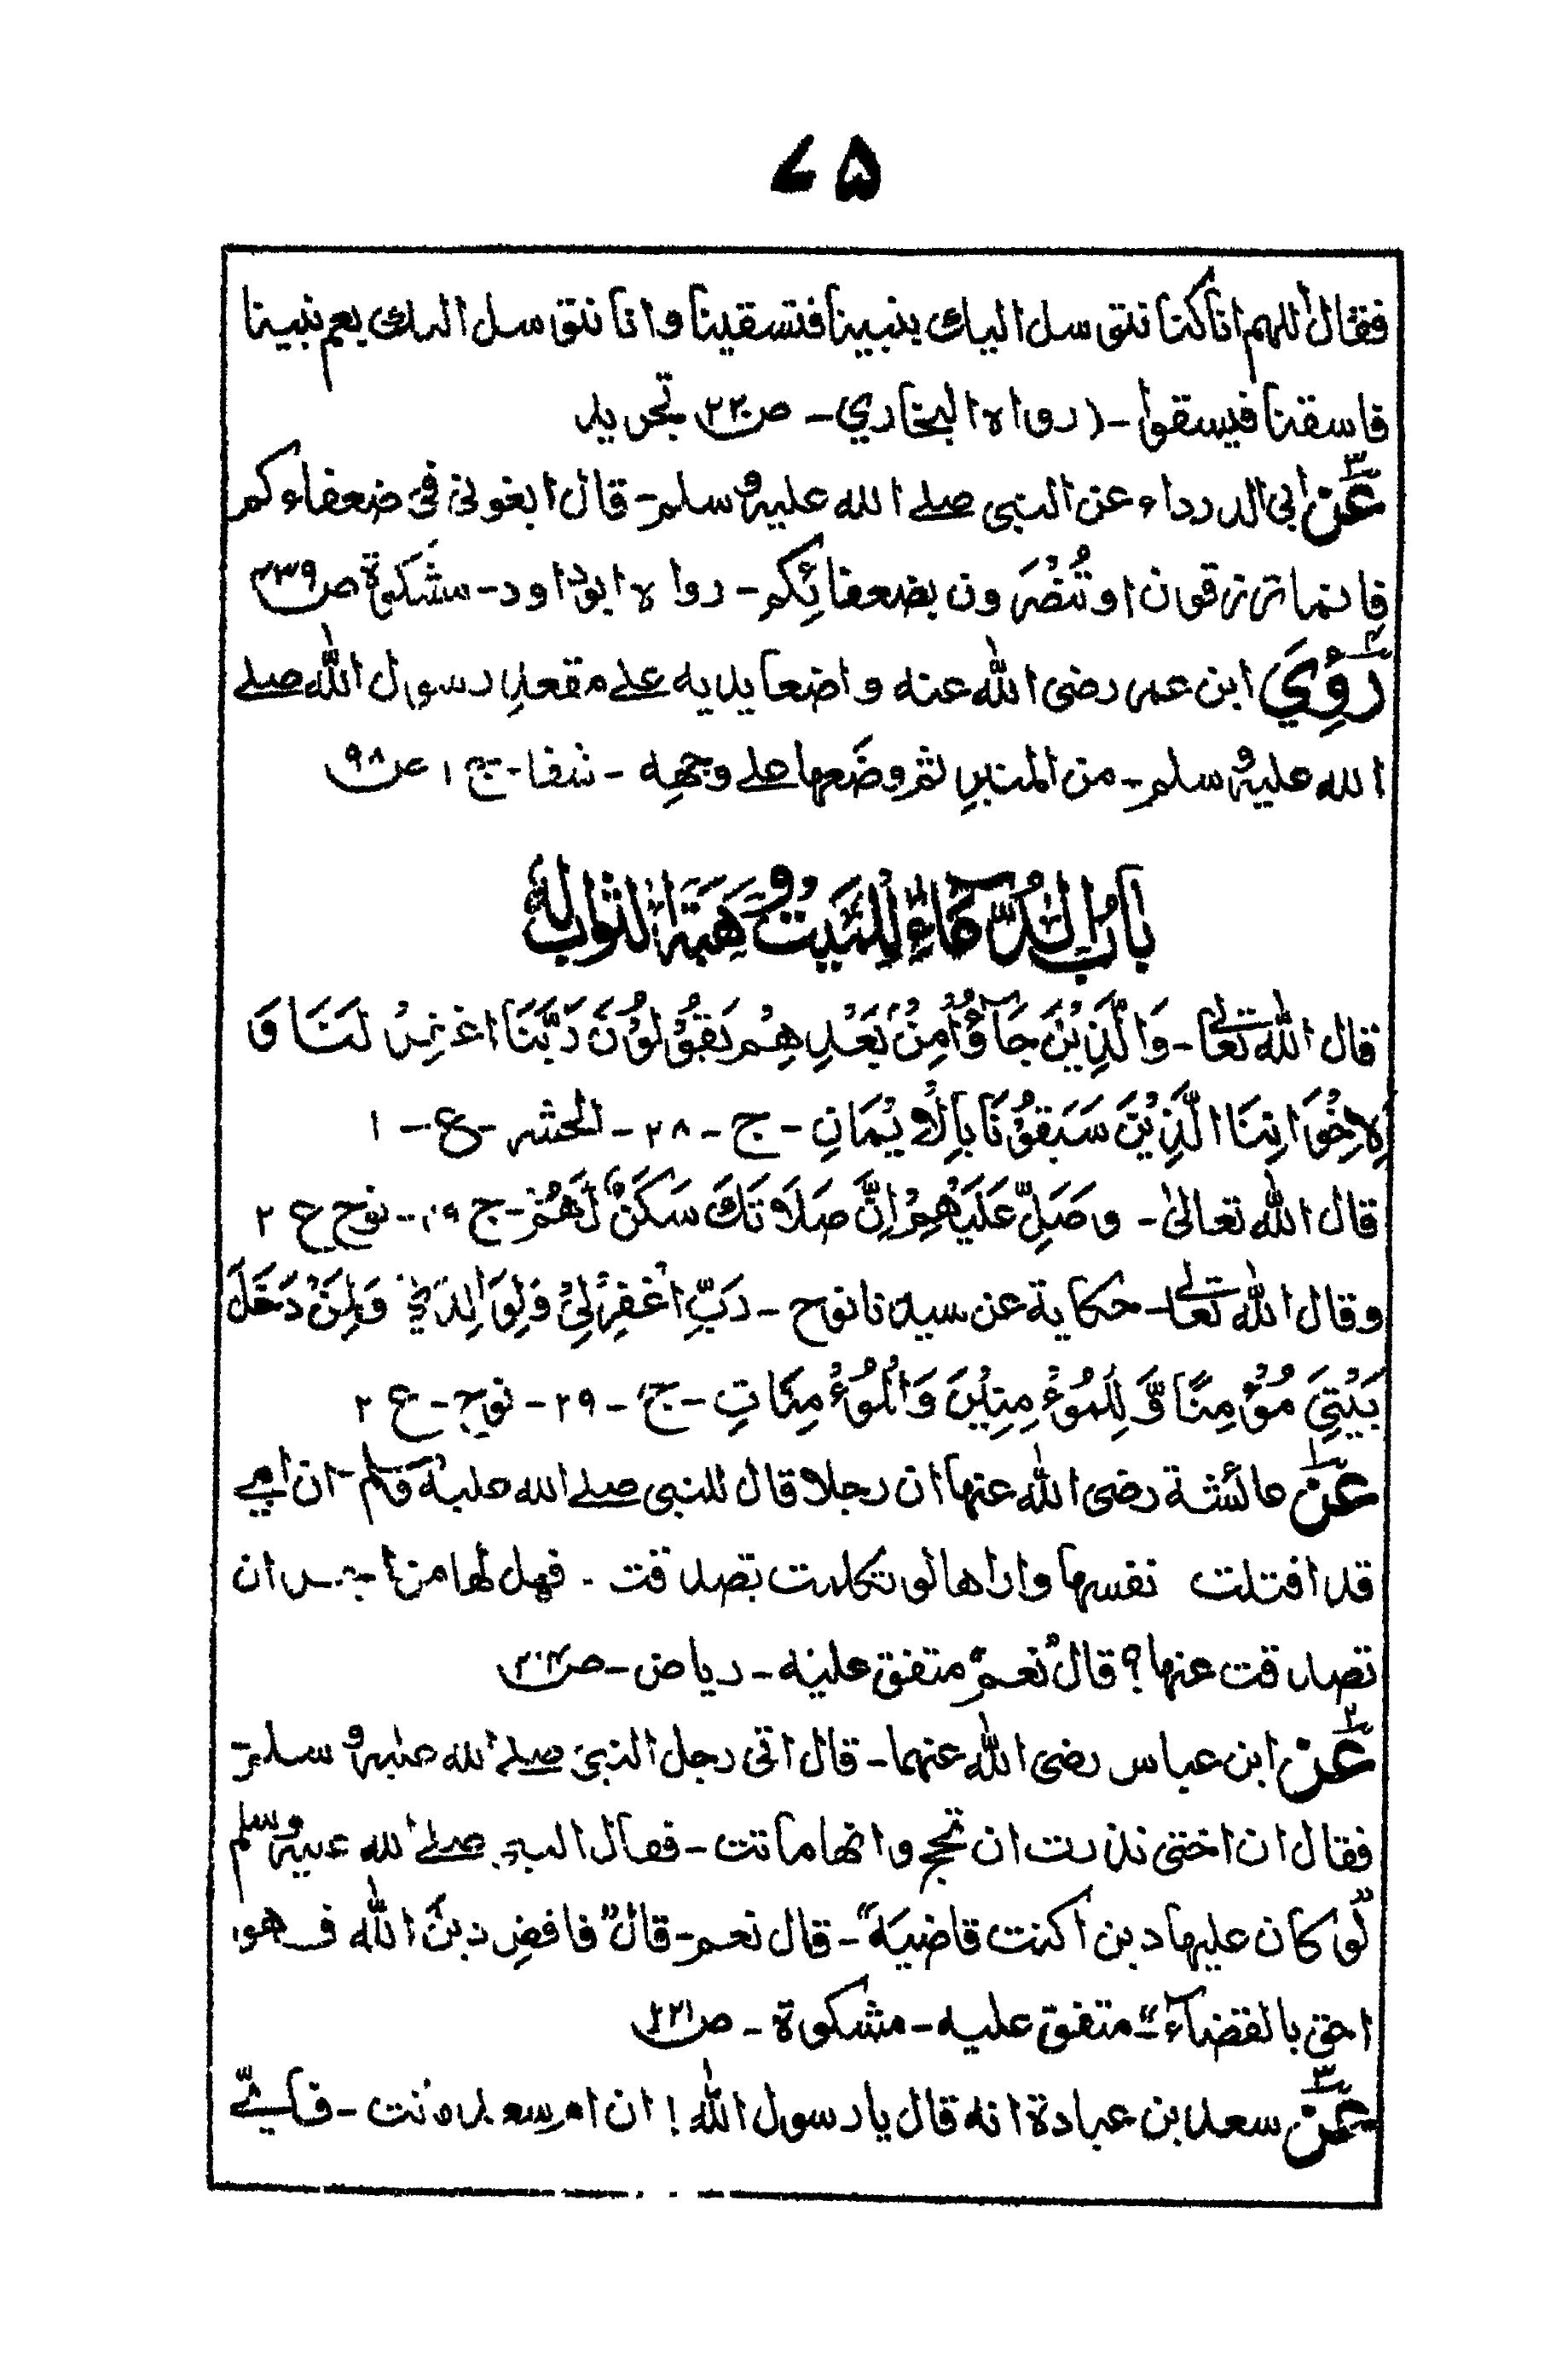 ۷۵
فقال اللهم انا كنا نتوسل اليك بنبينا فتسقينا وانا نتوسل اليك بعم نبينا
فاسقنا فيسقوا - (رواه البخاري - ص۲۳۰ تجريد
عن۳ ابي الدرداء عن النبي صلے الله عليه وسلم - قال ابغوني في ضعفاءكم
فانما ترزقون او تُنْصَرون بضعفائِكم - رواه ابوداود - مشكوة ص۴۳۹
رُوِيَ۴ ابن عمر رضى الله عنه واضعا يديه علے مقعدِ رسول الله صلے
الله عليه وسلم - من المنبرِ ثم وضَعها علے وجهِه - شفا - ج ۱ ص۹۸
بَابُ الدُّعَاءِ لِلْمَيِّتْ وَهِبَةِ الثَّوابِ لَهُ
قال الله تعالى - وَالَّذِيْنَ جَآؤُا مِنْ بَعْدِهِمْ يَقُوْلُوْنَ رَبَّنَا اغْفِرْ لَنَا وَ
لِاِخْوَانِنَا الَّذِيْنَ سَبَقُوْنَا بِالْاِيْمَانِ - ج - ۲۸ - الحشر - ع - ۱
قال الله تعالىٰ - وصَلِّ عَلَيْهِمْ اِنَّ صَلَاتَكَ سَكَنٌ لَّهُمْ - ج ۲۹ - نوح ع ۲
وقال الله تعالى - حكاية عن سيدنا نوح - رَبِّ اغْفِرْلِيْ وَلِوَالِدَيَّ وَلِمَنْ دَخَلَ
بَيْتِيَ مُؤْمِنًا وَّلِلْمُؤْمِنِيْنَ وَالْمُؤْمِنَاتِ - ج - ۲۹ - نوح - ع ۲
عن۱ عائشة رضى الله عنها ان رجلا قال للنبى صلے الله عليه وسلم - ان امي
قد افتلت نفسها واراها لو تكلمت تصدقت . فهل لها من اجر ان
تصدقت عنها؟ قال نعم" متفق عليه - رياض - ص۳۰۲
عن۲ ابن عباس رضى الله عنهما - قال اتى رجل النبي صلے الله عليه وسلم -
فقال ان اختي نذرت ان تحج وانها ماتت - فقال النبي صلے الله عليه وسلم
"لو كان عليها دين اكنت قاضيَه" - قال نعم - قال "فاقضِ دينَ الله فهو
احق بالقضآء" - متفق عليه - مشكوة - ص۲۲۱
عن۳ سعد بن عبادة انه قال يا رسول الله! ان ام سعد ماتت - فايُّ